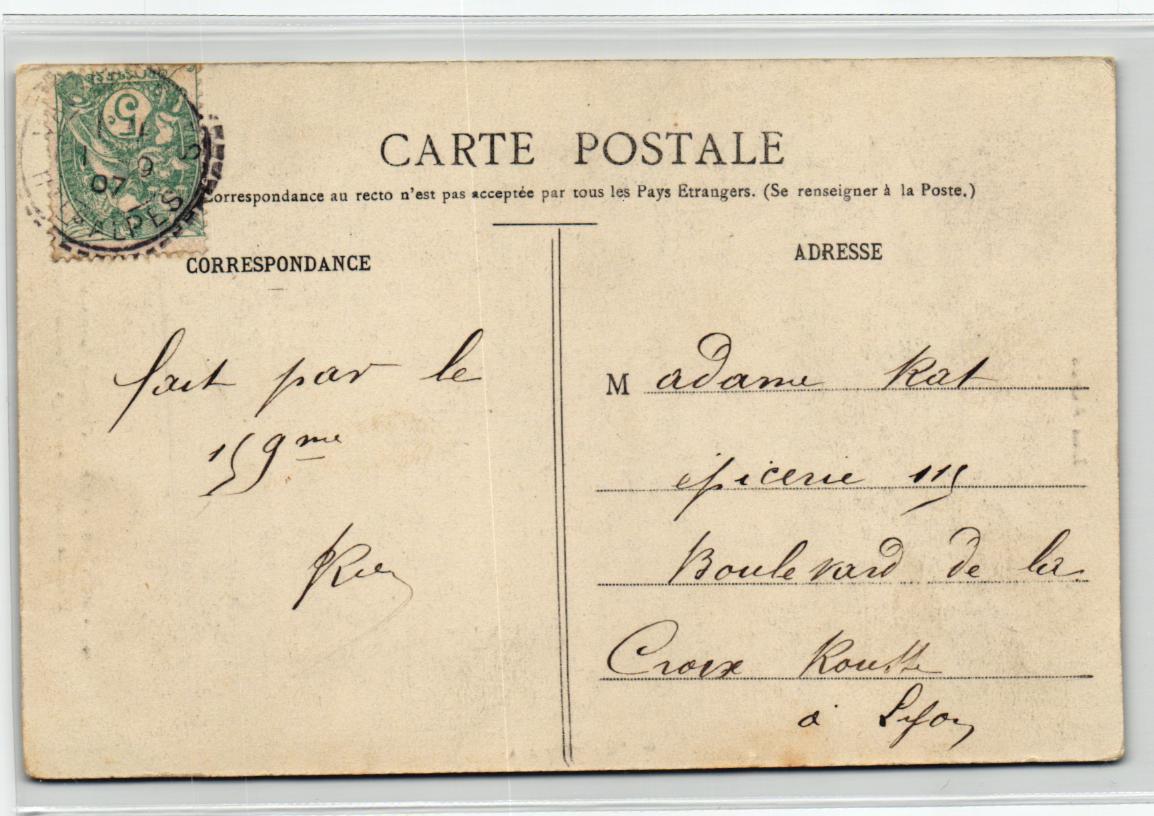 5
9
07
Htes ALPES
CARTE POSTALE
Correspondance au recto n'est pas acceptée par tous les Pays Etrangers. (Se renseigner à la Poste.)
CORRESPONDANCE
fait par le
159me
ADRESSE
Madame Rat
épicerie 115
Boulevard de la
Croix Rousse
à Lyon